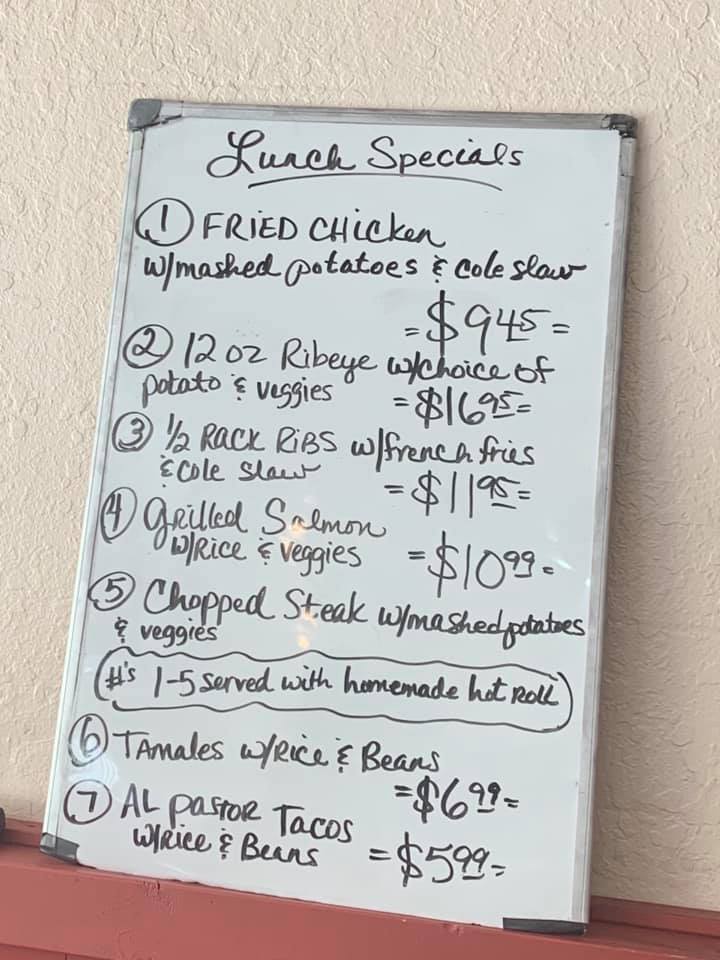 Lunch Specials
1 FRIED CHICKEN
w/mashed potatoes & cole slaw
= $9.45 =
2 12 oz Ribeye w/choice of
potato & veggies = $16.95 =
3 1/2 RACK RIBS w/french fries
& cole slaw = $11.95 =
4 GRilled Salmon
w/Rice & veggies = $10.99 =
5 Chopped Steak w/mashed potatoes
& veggies
#'s 1-5 served with homemade hot Roll
6 TAmales w/Rice & Beans
= $6.99 =
7 AL pastor Tacos
w/Rice & Beans = $5.99 =